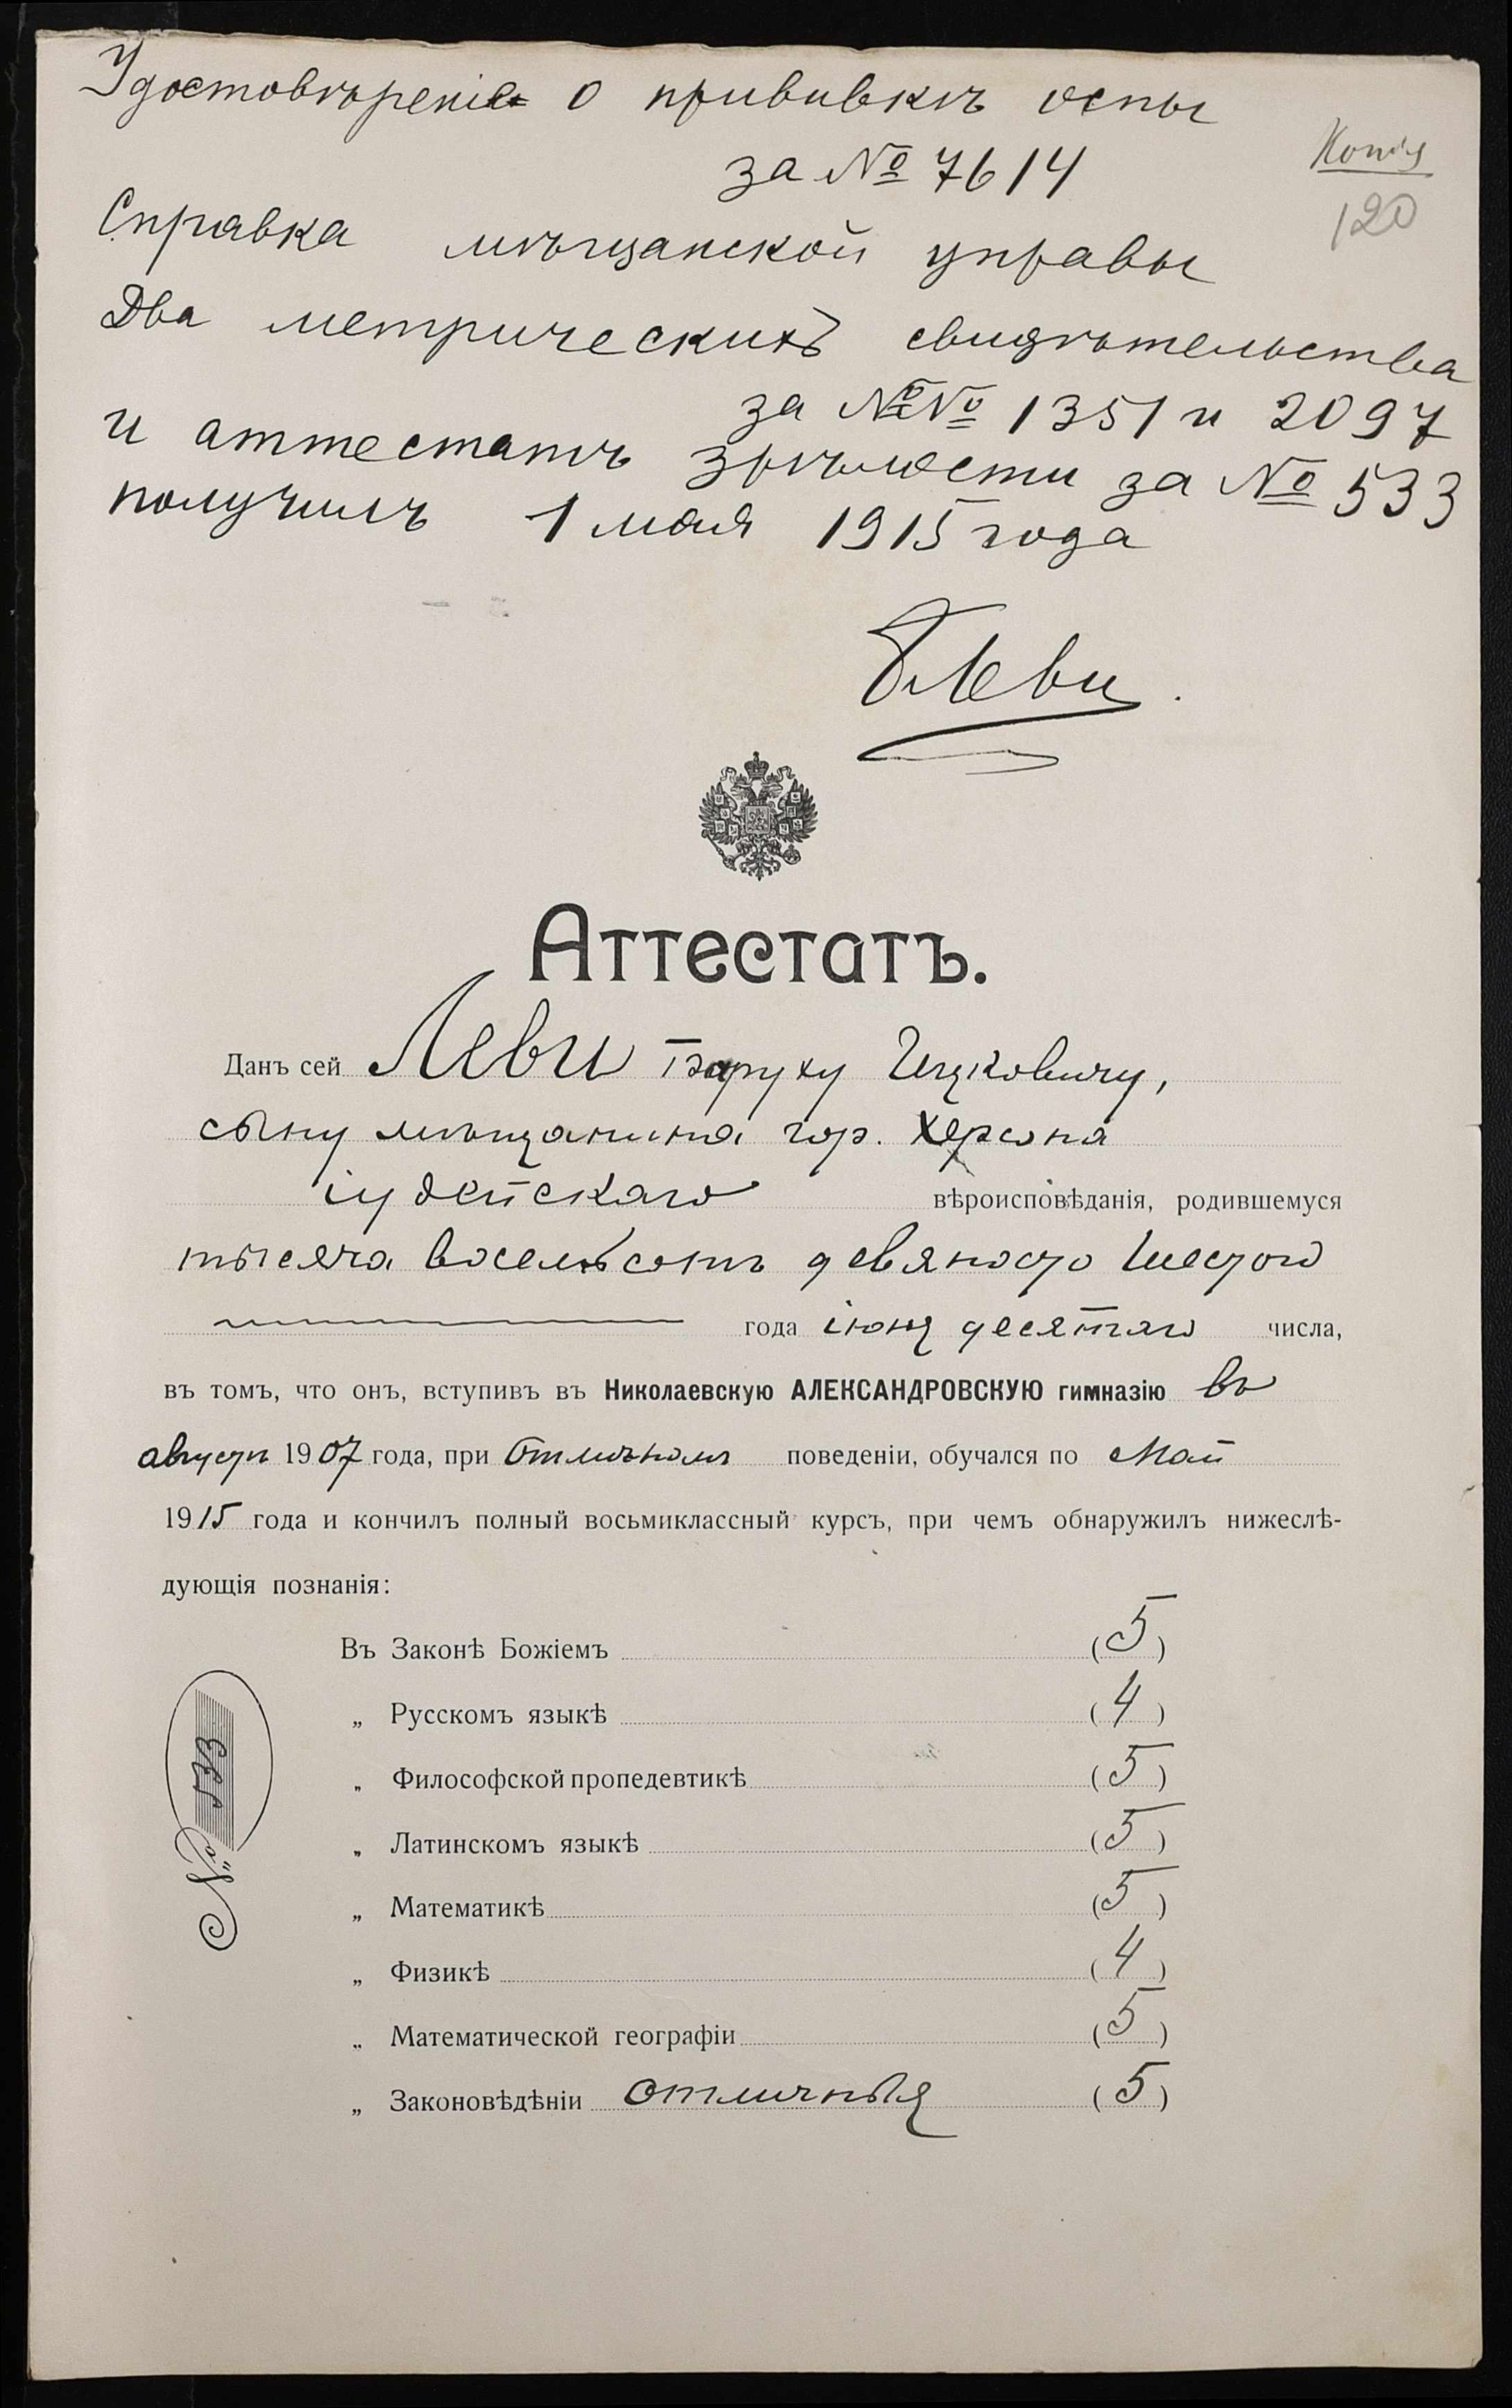 Удостовѣреніе о прививкѣ оспы
за № 7614
Копія
120
Справка мѣщанской управы
Два метрическихъ свидѣтельства
за №№ 1351 и 2097
и аттестатъ зрѣлости за № 533
получилъ 1 мая 1915 года
БЛеви.
Аттестатъ.
Данъ сей Леви Баруху Ицковичу,
сыну мѣщанина гор. Херсона
іудейскаго вѣроисповѣданія, родившемуся
тысяча восемьсотъ девяносто шестого
года іюня десятаго числа,
въ томъ, что онъ, вступивъ въ Николаевскую АЛЕКСАНДРОВСКУЮ гимназію въ
августѣ 1907 года, при отличномъ поведеніи, обучался по Май
1915 года и кончилъ полный восьмиклассный курсъ, при чемъ обнаружилъ нижеслѣ-
дующія познанія:
Въ Законѣ Божіемъ (5)
„ Русскомъ языкѣ (4)
„ Философской пропедевтикѣ (5)
„ Латинскомъ языкѣ (5)
„ Математикѣ (5)
„ Физикѣ (4)
„ Математической географіи (5)
„ Законовѣдѣніи отличныя (5)
№ 533